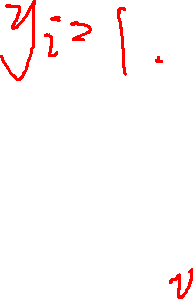 y_i = 1.
v